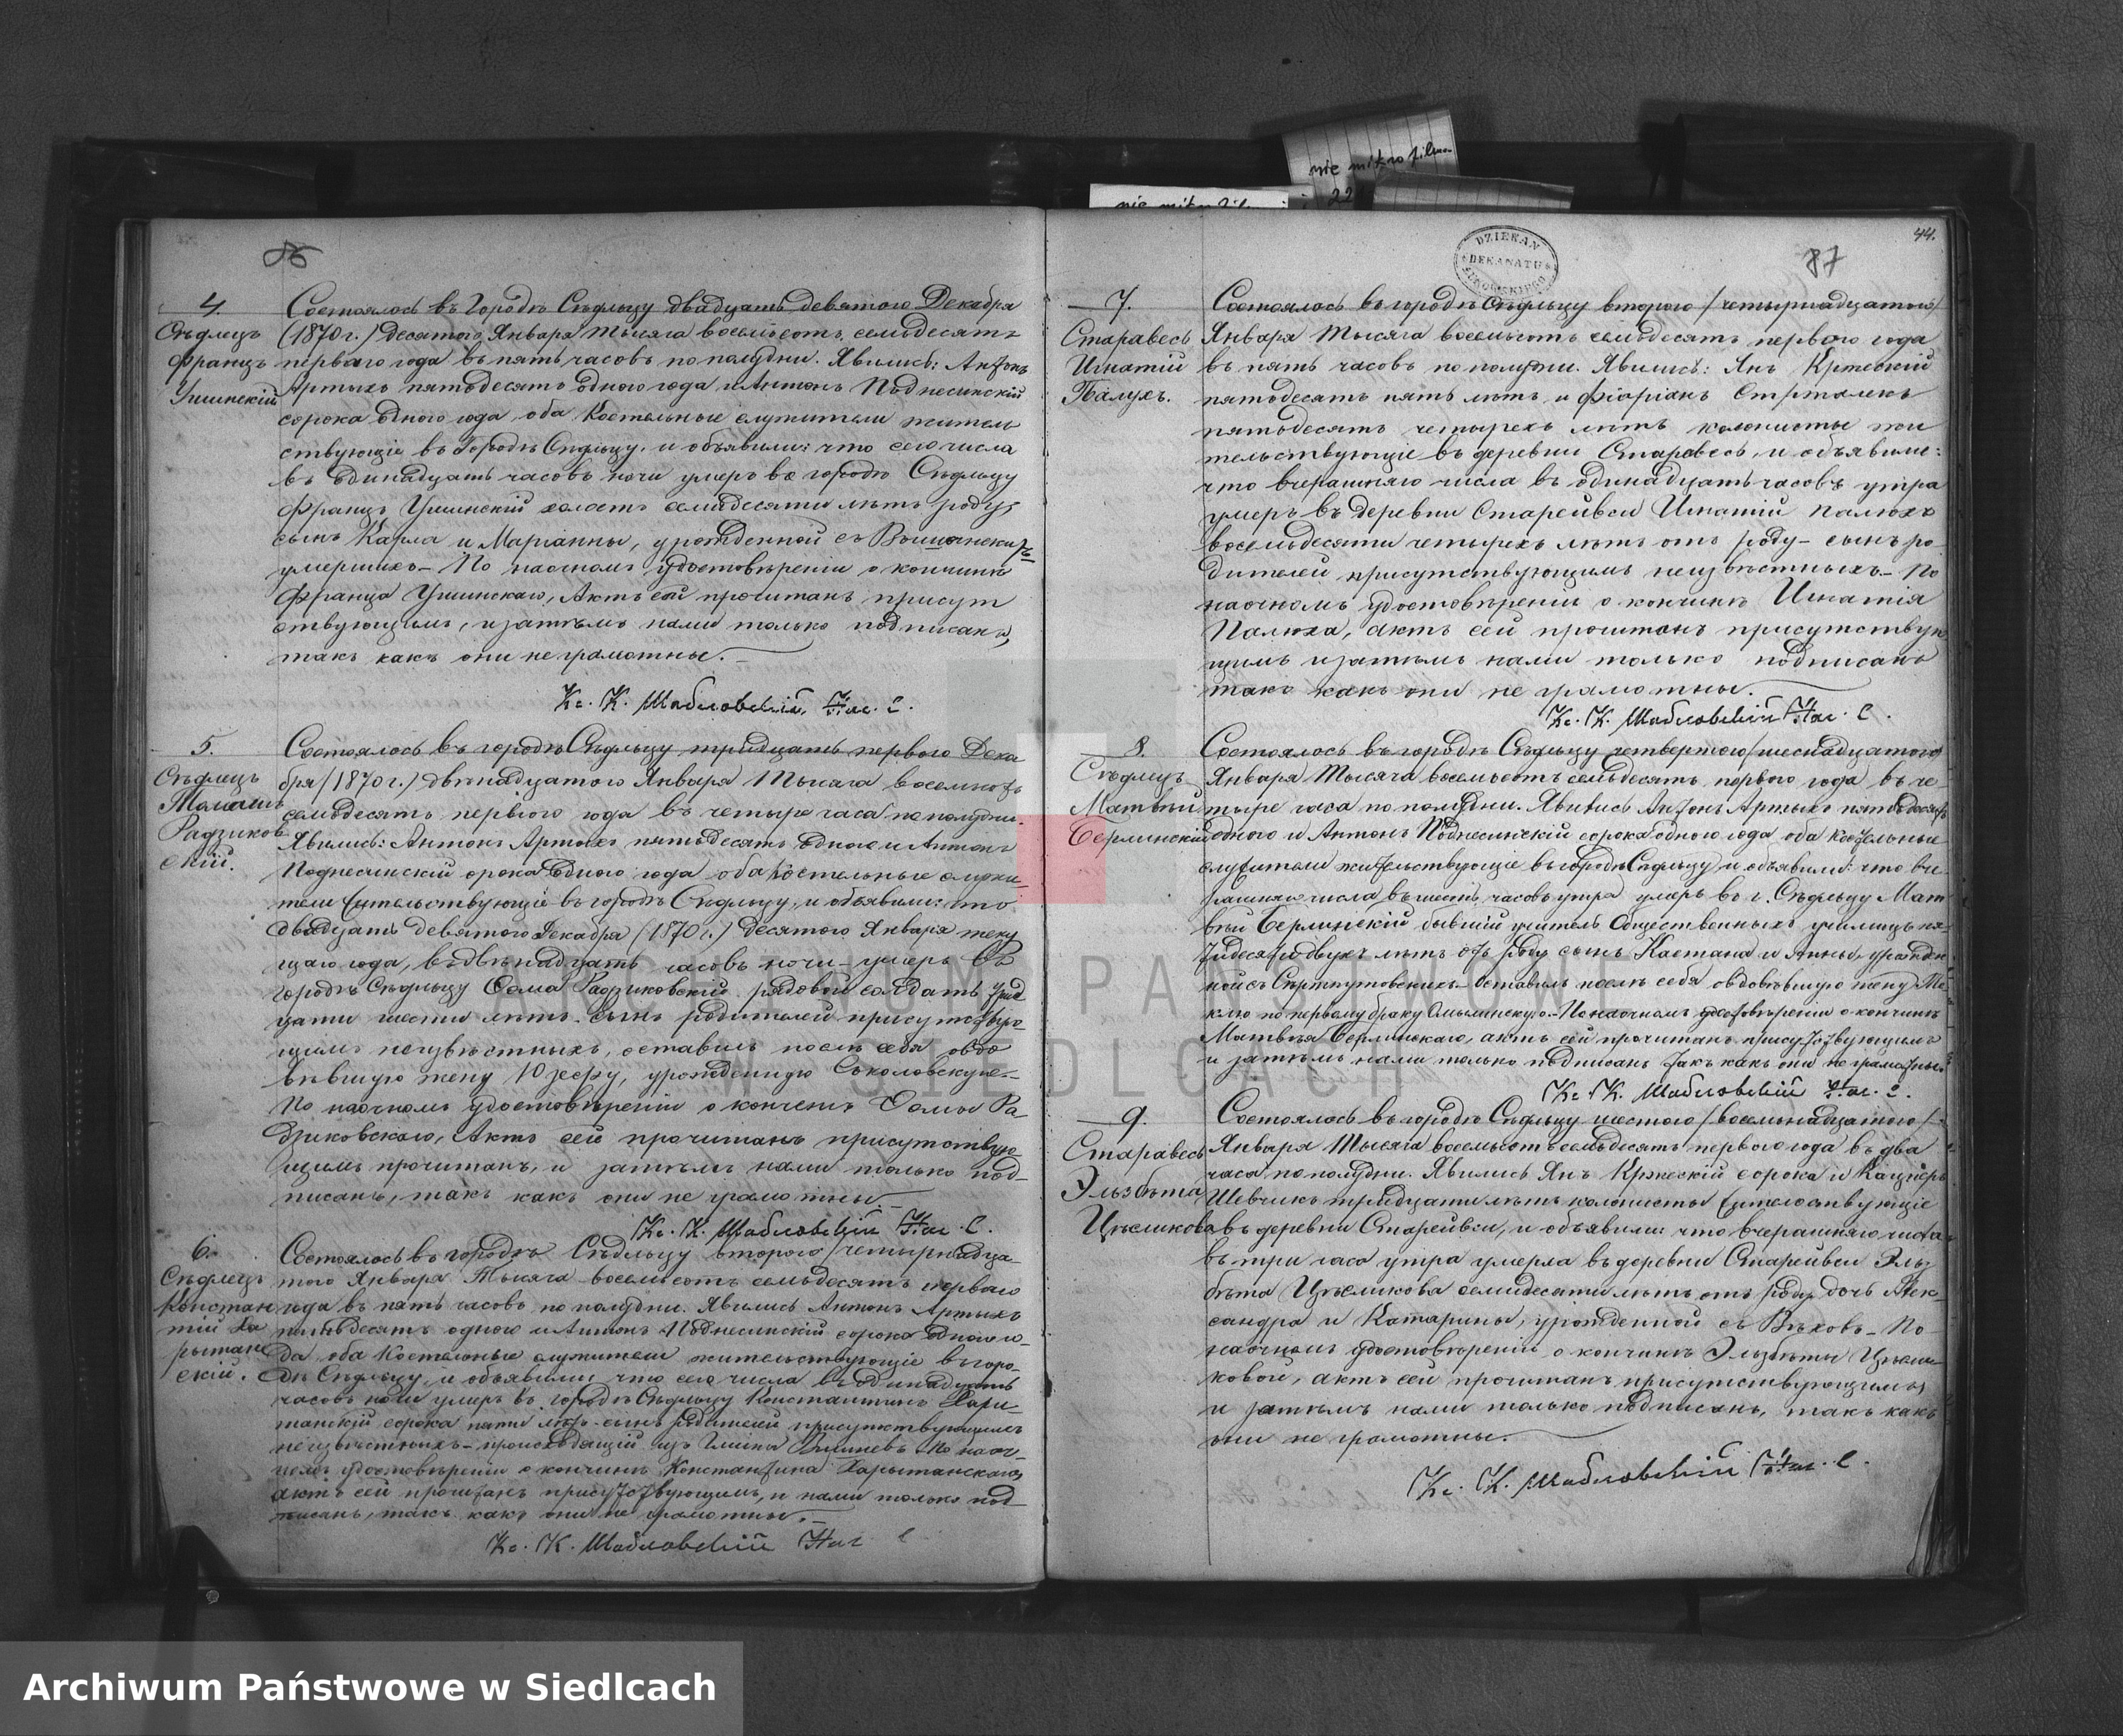 nie mikrofilm
22
86
4.
Сѣдлецъ
Францъ
Ушинскій
Состоялось въ Городѣ Сѣдльцу двадцать девятого Декабря
(1870 г.) десятого Января Тысяча восемьсотъ семьдесятъ
первaго года въ пять часовъ по полудни. Явились: Антонъ
Артыхъ пятьдесятъ одного года и Антонъ Поднесинскій
сорока одного года оба Костельные служители житель
ствующіе въ Городѣ Сѣдльцу, и объявили: что сего числа
въ одинадцать часовъ ночи умеръ въ городѣ Сѣдльцу
Францъ Ушинскій холостъ семидесяти лѣтъ роду,
сынъ Карла и Маріанны, урожденной съ
умершихъ – По наочномъ удостовѣреніи о кончинѣ
Франца Ушинскаго, Актъ сей прочитанъ присут
ствующимъ, и затѣмъ нами только подписанъ,
такъ какъ они не грамотные. –
Кс. К. Шабловскій, Нас. С.
5.
Сѣдлецъ
Томашъ
Радзиков
скій.
Состоялось въ городѣ Сѣдльцу тридцать первого Дека
бря (1870 г.) двѣнадцатого Января Тысяча восемьсотъ
семьдесятъ первого года въ четыре часа по полудни.
Явились: Антонъ Артыхъ пятьдесятъ одного и Антонъ
Поднесинскій сорока одного года оба Костельные служи
тели жительствующіе въ городѣ Сѣдльцу, и объявили: что
двадцать девятого Декабря (1870 г.) десятого Января теку
щаго года, въ двѣнадцать часовъ ночи – умеръ въ
городѣ Сѣдльцу Ѳома Радзиковскій рядовой солдатъ трид
цати шести лѣтъ. сынъ родителей присутствую
щимъ неизвѣстныхъ, оставилъ послѣ себя овдо
вѣвшую жену Юзефу, урожденную Соколовскую –
По наочномъ удостовѣреніи о кончинѣ Ѳомы Ра
дзиковского, Актъ сей прочитанъ присутствую
щимъ прочитанъ, и затѣмъ нами только под
писанъ, такъ какъ они не грамотны –
Кс. К. Шабловскій Нас. С.
6.
Сѣдлецъ
Констан
тій Ха
рытан
скій.
Состоялось въ городѣ Сѣдльцу второго / четырнадца
того Января Тысяча восемьсотъ семьдесятъ первaго
года въ пять часовъ по полудни. Явились Антонъ Артыхъ
пятьдесятъ одного и Антонъ Поднесинскій сорока одного го
да оба Костельные служители жительствующіе въ горо
дѣ Сѣдльцу, и объявили: что сего числа въ одинадцать
часовъ ночи умеръ въ городѣ Сѣдльцу Константинъ Хари
танскій сорока пяти лѣтъ – сынъ родителей присутствующимъ
неизвѣстныхъ – происходящій изъ Гмины По наоч
номъ удостовѣреніи о кончинѣ Константина Харытанскаго,
актъ сей прочитанъ присутствующимъ, и нами только под
писанъ, такъ какъ они не грамотны. –
Кс. К. Шабловскій Нас С
DZIEKAN
DEKANATU
ŁUKOWSKIEGO
44.
87
7.
Старавесь
Игнатій
Палухъ.
Состоялось въ городѣ Сѣдльцу второго / четырнадцатого /
Января Тысяча восемьсотъ семьдесятъ первого года
въ пять часовъ по полудни. Явились: Янъ Кржескій
пятьдесятъ пять лѣтъ и Флоріанъ
пятьдесятъ четырехъ лѣтъ колонисты жи
тельствующіе въ деревни Старавесь, и объявили:
что вчерашняго числа въ одинадцать часовъ утра
умеръ въ деревни Старейвси Игнатій Палюхъ
восемьдесяти четырехъ лѣтъ отъ роду – сынъ ро
дителей присутствующимъ неизвѣстныхъ. – По
наочномъ удостовѣреніи о кончинѣ Игнатія
Палюха, актъ сей прочитанъ присутствую
щимъ и затѣмъ нами только подписанъ
такъ какъ они не грамотны.
Кс. К. Шабловскій Нас. С.
8.
Сѣдлецъ
Матвѣй
Берлинскій
Состоялось въ городѣ Сѣдльцу четвертого / шеснадцатого
Января Тысяча восемьсотъ семьдесятъ первого года въ че
тыре часа по полудни. Явились Антонъ Артыхъ пятьдесятъ
одного и Антонъ Поднесинскій сорока одного года оба костельные
служители жительствующіе въ городѣ Сѣдльцу, и объявили: что вче
рашняго числа въ шесть часовъ утра умеръ въ г. Сѣдльцу Мат
вѣй Берлинскій бывшій учитель Общественныхъ училищъ пя
тидесяти двухъ лѣтъ отъ роду сынъ Каетана и Анны, урожден
ной съ – Оставилъ послѣ себя овдовѣвшую жену Те
клю по первому браку – По наочномъ удостовѣреніи о кончинѣ
Матвѣя Берлинскаго, актъ сей прочитанъ присутствующимъ
и затѣмъ нами только подписанъ такъ какъ они не грамотны.
Кс. К. Шабловскій Нас. С.
9.
Старавесь
Эльзбѣта
Цѣсликова
Состоялось въ городѣ Сѣдльцу шестого / восемнадцатого /
Января Тысяча восемьсотъ семьдесятъ первого года въ два
часа по полудни. Явились Янъ Кржескій сорока и Кацперъ
Шевчикъ тридцати лѣтъ колонисты жительствующіе
въ деревни Старейвси, и объявили: что вчерашняго числа
въ три часа утра умерла въ деревни Старейвси Эльз
бѣта Цѣсликова семидесяти лѣтъ отъ роду, дочь Алек
сандра и Катарины, урожденной съ – По
наочномъ удостовѣреніи о кончинѣ Эльзбѣты Цѣсли
ковой, актъ сей прочитанъ присутствующимъ,
и затѣмъ нами только подписанъ, такъ какъ
они не грамотны.
Кс. К. Шабловскій Нас. С.
ARCHIWUM PAŃSTWOWE
W SIEDLCACH
Archiwum Państwowe w Siedlcach